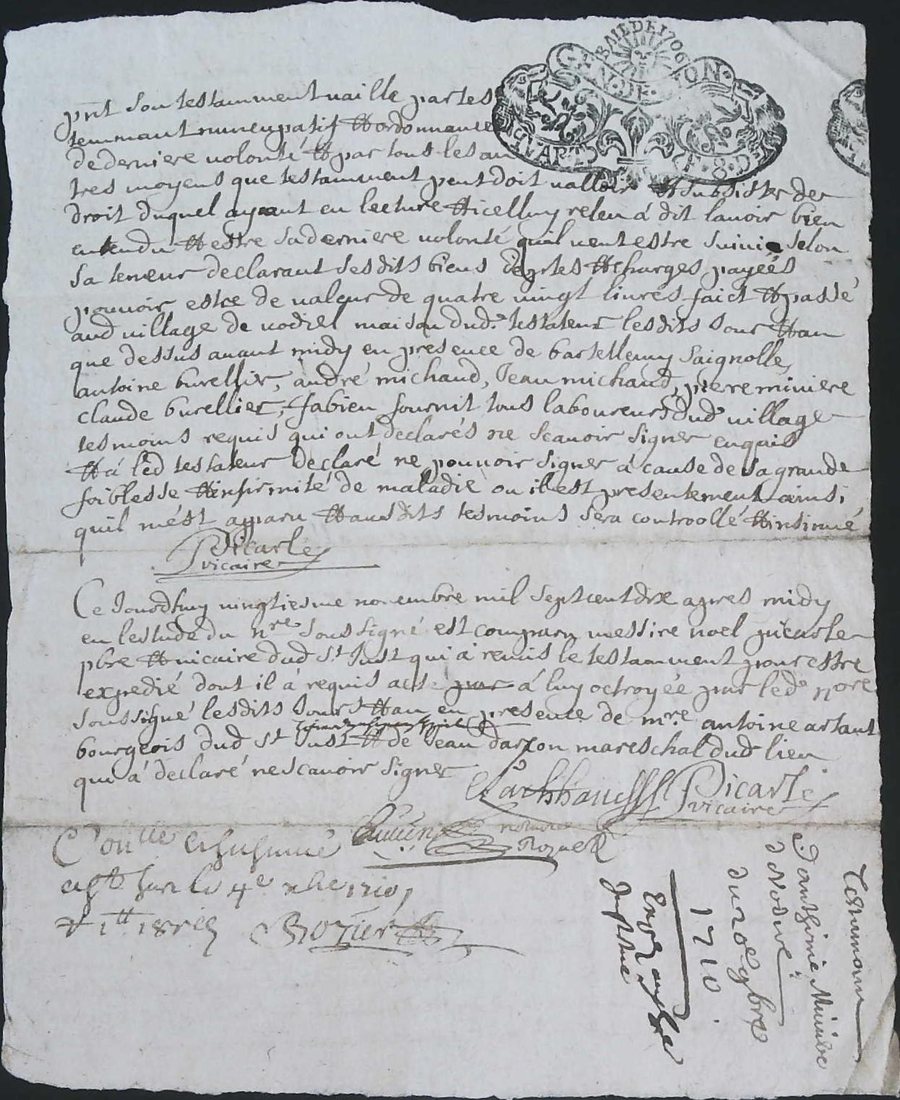 BAIL DE 1706
GEN. DE LYON
QVART F. 8. D.
pñt son testamment vaille par tes
temmant nuncupatif et ordonnance
de derniere volonté et par tous les au
tres moyens que testamment peut doit valloir et subsister de
droit duquel ayant eu lecture et icelluy releu à dit lavoir bien
entendu et estre sa derniere volonté quil veut estre suivie selon
sa teneur declarant sesdits biens debtes et charges payées
pouvoir estre de valeur de quatre vingt livres faict et passé
aud village de vodiel maison dud. testateur lesdits jour et an
que dessus avant midy en presence de bartellemy saignolle,
antoine burellier, andré michaud, Jean michaud, pierre miniere
claude burellier, fabien fournit tous laboureurs dud village
tesmoins requis qui ont declarés ne scavoir signer enquis
et à led testateur declaré ne pouvoir signer à cause de sa grande
foiblesse et infirmité de maladie ou il est presentement ainsi
quil mést aparu et ausdits tesmoins sera controllé et insinué
Picarle
vicaire
Ce Jourdhuy vingtiesme novembre mil sept cent dix apres midy
en lestude du nre soussigné est comparu messire noel picarle
pbre et vicaire dud St Just qui à remis le testamment pour estre
expedié dont il à requis acte par à luy octroyée par led nore
soussigné lesdits jour et an en presence de mre antoine artaut
bourgeois dud St Just et de Jean darson mareschal dud lieu
qui à declaré ne scavoir signer
Picarle
vicaire
notaire
Rozier
Con.lle et insinué
le 4e xbre 1710,
Rozier
Testamant
danthime Minière
de Vodiré
du 20e 9bre
1710.